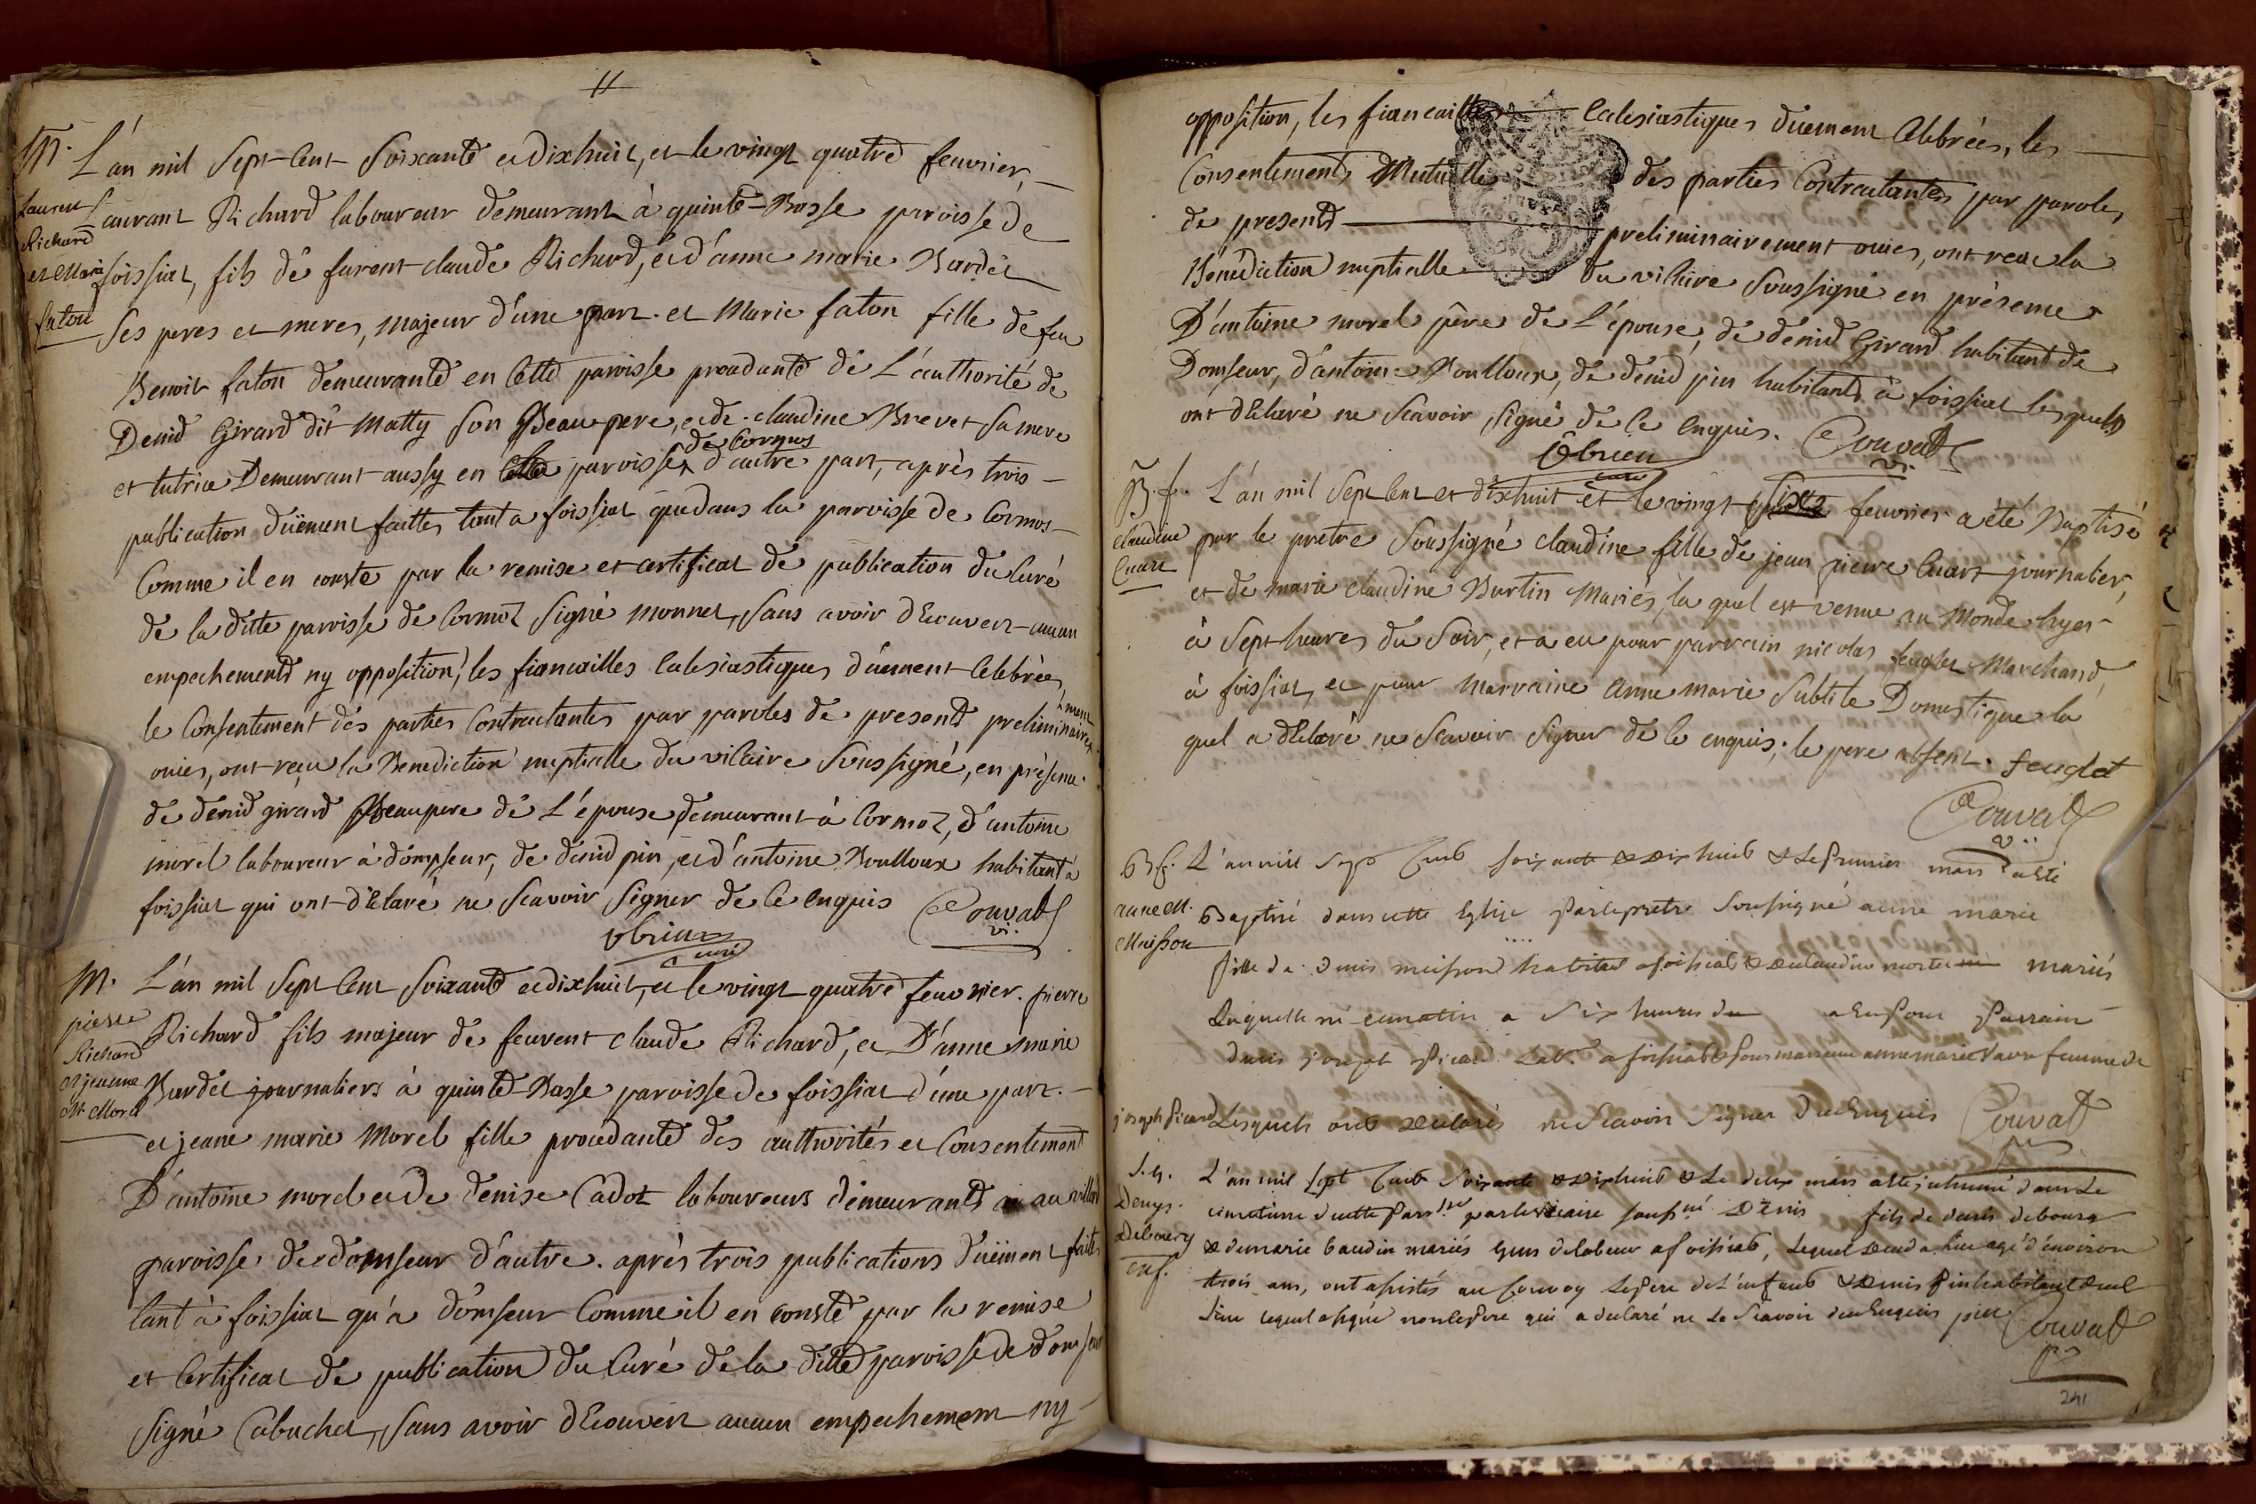 11
M.
Laurent
Richard
et Marie
faton
L'an mil Sept Cent Soixante et dixhuit, et le vingt quatre feuvrier,
Laurant Richard laboureur demeurant à quinte-Basse paroisse de
foissiat, fils de furent claude Richard, et d'anne marie Bardet
Ses peres et meres, majeur d'une part. et Marie faton fille de feu
Benoit faton demeurante en Cette paroisse procedante de L'authorité de
Denid Girard dit Matty Son Beaupere, et de claudine Brevet Sa mere
et tutrice Demeurant aussy en paroisse de Cormos d'autre part, après trois
publication düement faittes tant a foissiat que dans la paroisse de Cormos
Comme il en conste par la remise et certificat de publication du Curé
de la ditte paroisse de Cormoz Signé monnet, Sans avoir dEcouvert aucun
empechementd ny opposition, les fiancailles Eclesiastiques düement Celebrées,
le Consentement des parties Contractantes par paroles de presentd preliminairement
ouies, ont reçu la Benediction nuptialle du viCaire Soussigné, en présence
de denid girard Beaupere de L'épouse demeurant à Cormoz, d'antoine
morel laboureur à dompseur, de denid pin, et d'antoine Boulloux habitant à
foissiat qui ont dEclaré ne Scavoir Signer de Ce Enquis Couvat
vi.
Obrien
curé
M.
pierre
Richard
et jeanne
M. Morel
L'an mil Sept Cent Soixante et dixhuit, et le vingt quatre feuvrier. pierre
Richard fils majeur de feuvent claude Richard, et D'anne marie
Bardet journaliers à quinte-Basse paroisse de foissiat d'une part.
et jeane marie Morel fille procedante des authorités et Consentement
D'antoine morel et de denise Cadot laboureurs demeurantd au villard
paroisse de domseur d'autre. après trois publications düement faittes
tant à foissiat qu'a domseur Comme il en conste par la remise
et Certificat de publication du Curé de la ditte paroisse de domseur
Signé Cabuchet, Sans avoir dEcouvert aucun empechement ny
opposition, les fiancailles Eclesiastiques düement Celebrées, les
Consentements Mutuelles des parties Contractantes par paroles
de presentd preliminairement ouies, ont recu la
Benédiction nuptialle du viCaire Soussigné en présence
D'antoine morel père de L'épouse, de denid Girard habitant de
Domseur, d'antoine Boulloux, de denid pin habitants à foissiat lesquels
ont dEclaré ne Scavoir Signé de Ce Enquis. Couvat
vi.
Obrien
curé
B. f.
claudine
Cuart
L'an mil Sept Cent et dixhuit et le vingt feuvrier a été Baptisé
par le prêtre Soussigné claudine fille de jean pierre Cuart journalier,
et de marie claudine Burtin Mariés, la quel est venue au Monde hyer
à Sept heures du Soir, et a eu pour parrain nicolas feuglet Marchand
à foissiat, et pour Marraine Anne marie Subtile Domestique la
quel a dEclaré ne Scavoir Signer de Ce enquis; le pere absent. feuglet
Couvat
vi
B f.
anne M.
Maisson
L'an mil Sept Cent soixante & dix huit & le premier mars a ete
Baptisé dans cette Eglise par le pretre Soussigné anne marie
fille de denis maisson habitant a foissiat & de claudine mariés
Laquelle né ce matin a Six heures a Eu pour Parrain
denis joseph Picard a foissiat & pour marraine anne marie femme de
joseph Picard Lesquels ont declarés ne Scavoir Signer de ce Enquis Couvat
S. g.
Denys
Deboury
enf.
L'an mil sept Cent soixante & dix huit & Le deux mars a ete inhumé dans Le
cimetiere de cette Parsse par le vicaire souss né Denis fils de denis deboury
& de marie baudin mariés gens de labeur a foissiat, Lequel decedé agé d'environ
trois ans, ont assistés au Convoy Le Pere de L'enfant & Denis Pin habitant dud
Lieu lequel a signé non le Pere qui a declaré ne Le Scavoir de ce Enquis pin Couvat
241